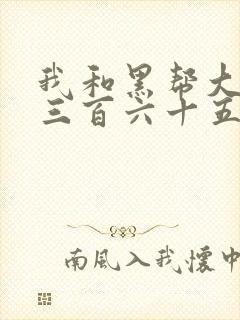 我和黑帮大
三百六十五
南風入我懷中